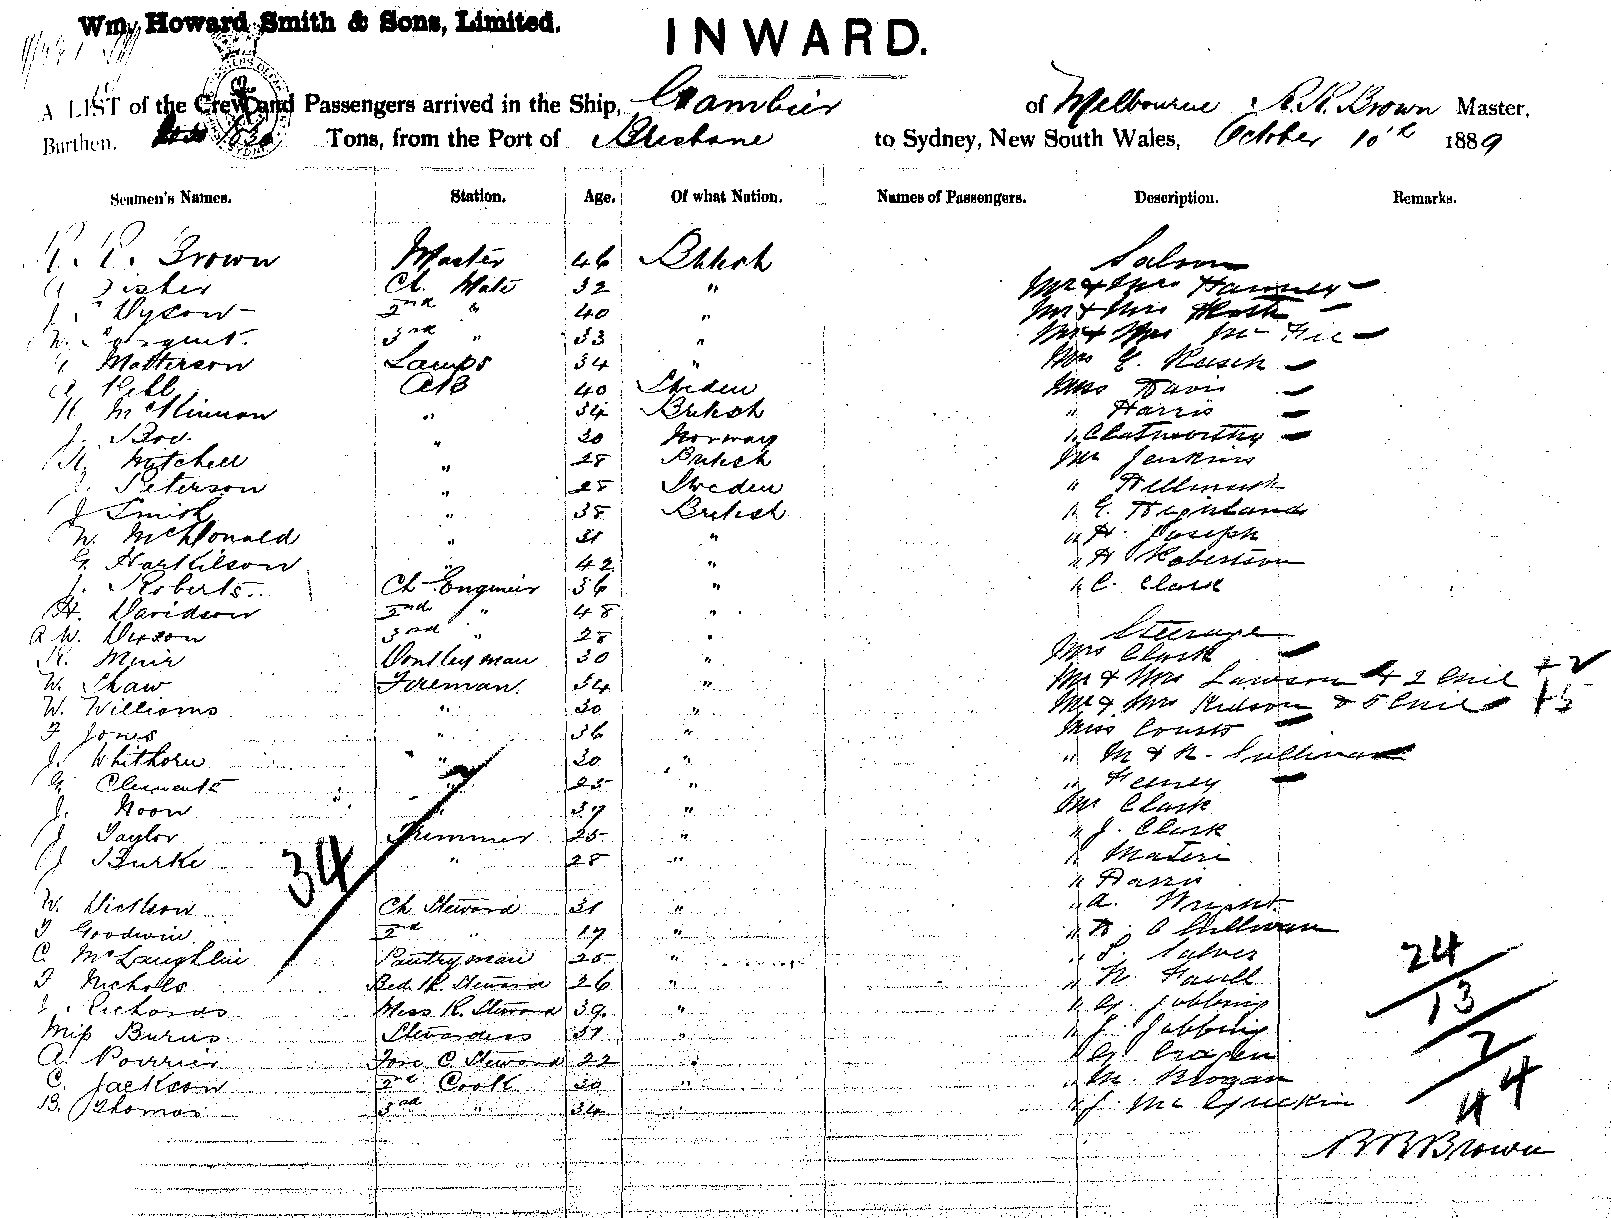 Wm. Howard Smith & Sons, Limited.
INWARD.
A LIST of the Crew and Passengers arrived in the Ship, Gambier of Melbourne R. R. Brown Master,
Burthen, Tons, from the Port of Brisbane to Sydney, New South Wales, October 10th 1889
Seamen's Names. Station. Age. Of what Nation. Names of Passengers. Description. Remarks.
R. R. Brown Master 46 British
Fisher Ch. Mate 32 "
J. Dyson 2nd " 40 "
3rd " 33 "
Matterson Lamps 34 "
Hill AB 40 Sweden
McKinnon " 34 British
J. " 30 Norway
Mitchell " 28 British
Peterson " 28 Sweden
J Smith " 38 British
W. McDonald " 31 "
G. " 42 "
J. Roberts Ch Engineer 36 "
H. Davidson 2nd " 48 "
A W. Dixson 3rd " 28 "
R. Muir Donkeyman 30 "
W. Shaw Fireman 34 "
W. Williams " 30 "
F Jones " 36 "
J. Whithorn " 30 "
G. Clements " 25 "
J. Noon " 37 "
J Taylor Trimmer 25 "
J Burke " 28 "
34
W. Dickson Ch Steward 31 "
F Goodwin 2nd " 19 "
C McLaughlin Pantryman 25 "
F Nichols Bed. R. Steward 26 "
J. Richards Mess R. Steward 39 "
Miss Burns Stewardess 37 "
A. Poirrier Fore C. Steward 22 "
C. Jackson 2nd Cook 30 "
B. Thomas 3rd " 34
Saloon
Mr & Mrs
Mr & Mrs
Mr & Mrs
Mrs E. Rusch
Miss Davis
" Harris
" Clatworthy
Mr Jenkins
" Hellmuth
" E. Highland
" H. Joseph
" H Robertson
" C. Clark
Steerage
Mrs Clark
Mr & Mrs Lawson & 2 Chil + 2
Mr & Mrs Hudson & 5 Chil + 5
Miss
" M & R. Sullivan
" Feeney
Mr Clark
" J. Clark
" Materi
" Harris
" A. Wright
" O Sullivan
" Salver
" N.
" G. Jobbing
" J. Jobbing
" G. Craven
" M. Brogan
" J. McGuckin
24
13
7
44
R R Brown